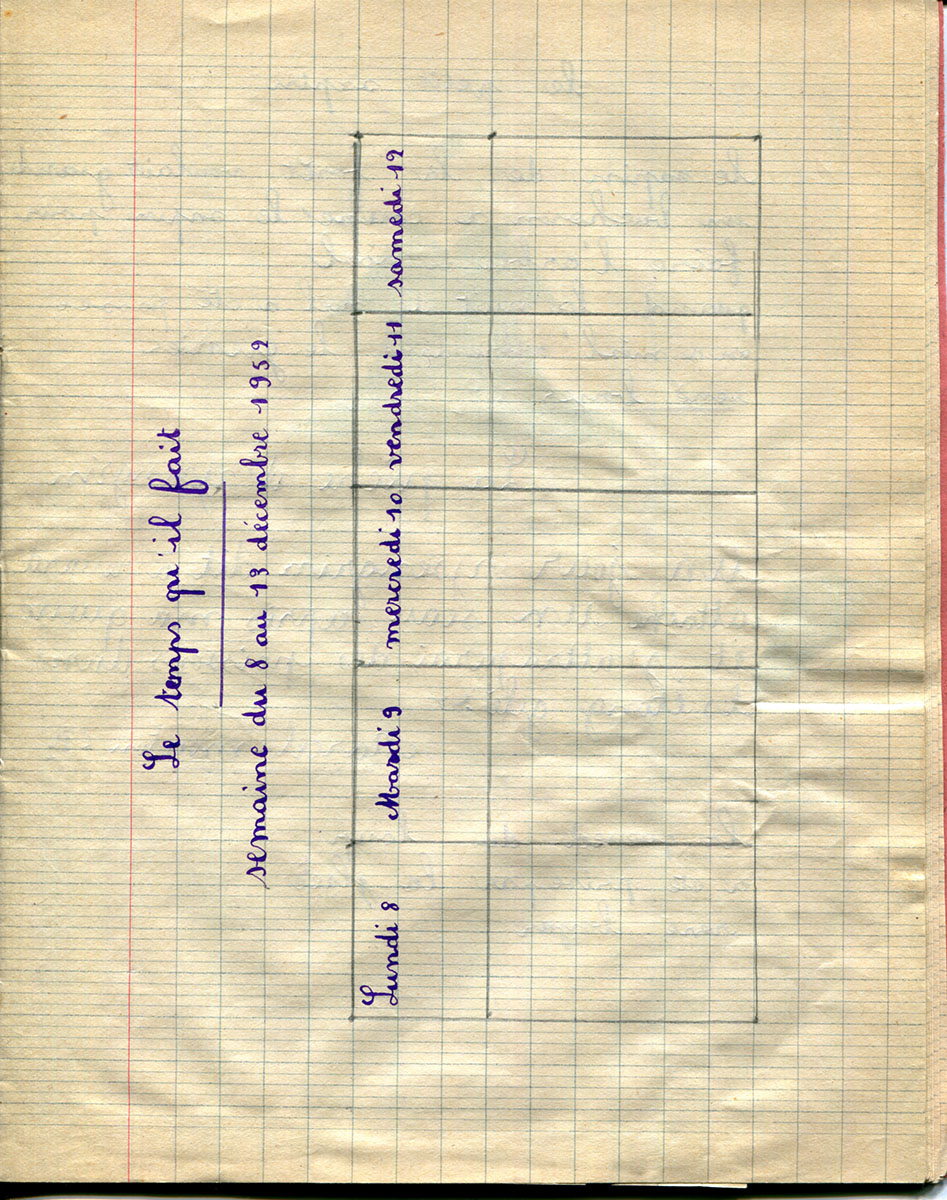 Le temps qu'il fait
semaine du 8 au 13 décembre 1952
Lundi 8 Mardi 9 mercredi 10 vendredi 11 samedi 12